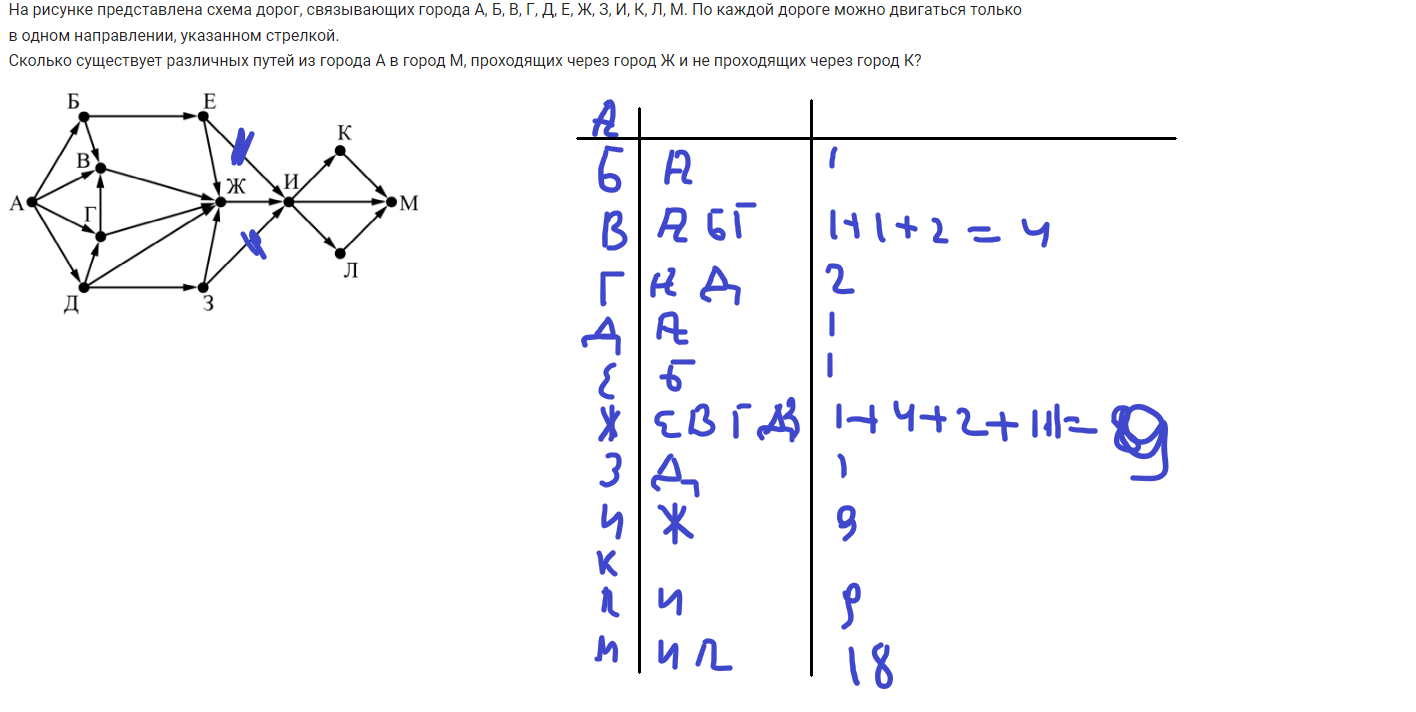 На рисунке представлена схема дорог, связывающих города А, Б, В, Г, Д, Е, Ж, З, И, К, Л, М. По каждой дороге можно двигаться только
в одном направлении, указанном стрелкой.
Сколько существует различных путей из города А в город М, проходящих через город Ж и не проходящих через город К?
Б Е
К
В
Ж И
А М
Г
Л
Д З
А
Б А 1
В А Б Г 1+1+2=4
Г А Д 2
Д А 1
Е Б 1
Ж Е В Г Д З 1+4+2+1+1=9
З Д 1
И Ж 9
К
Л И 9
М И Л 18